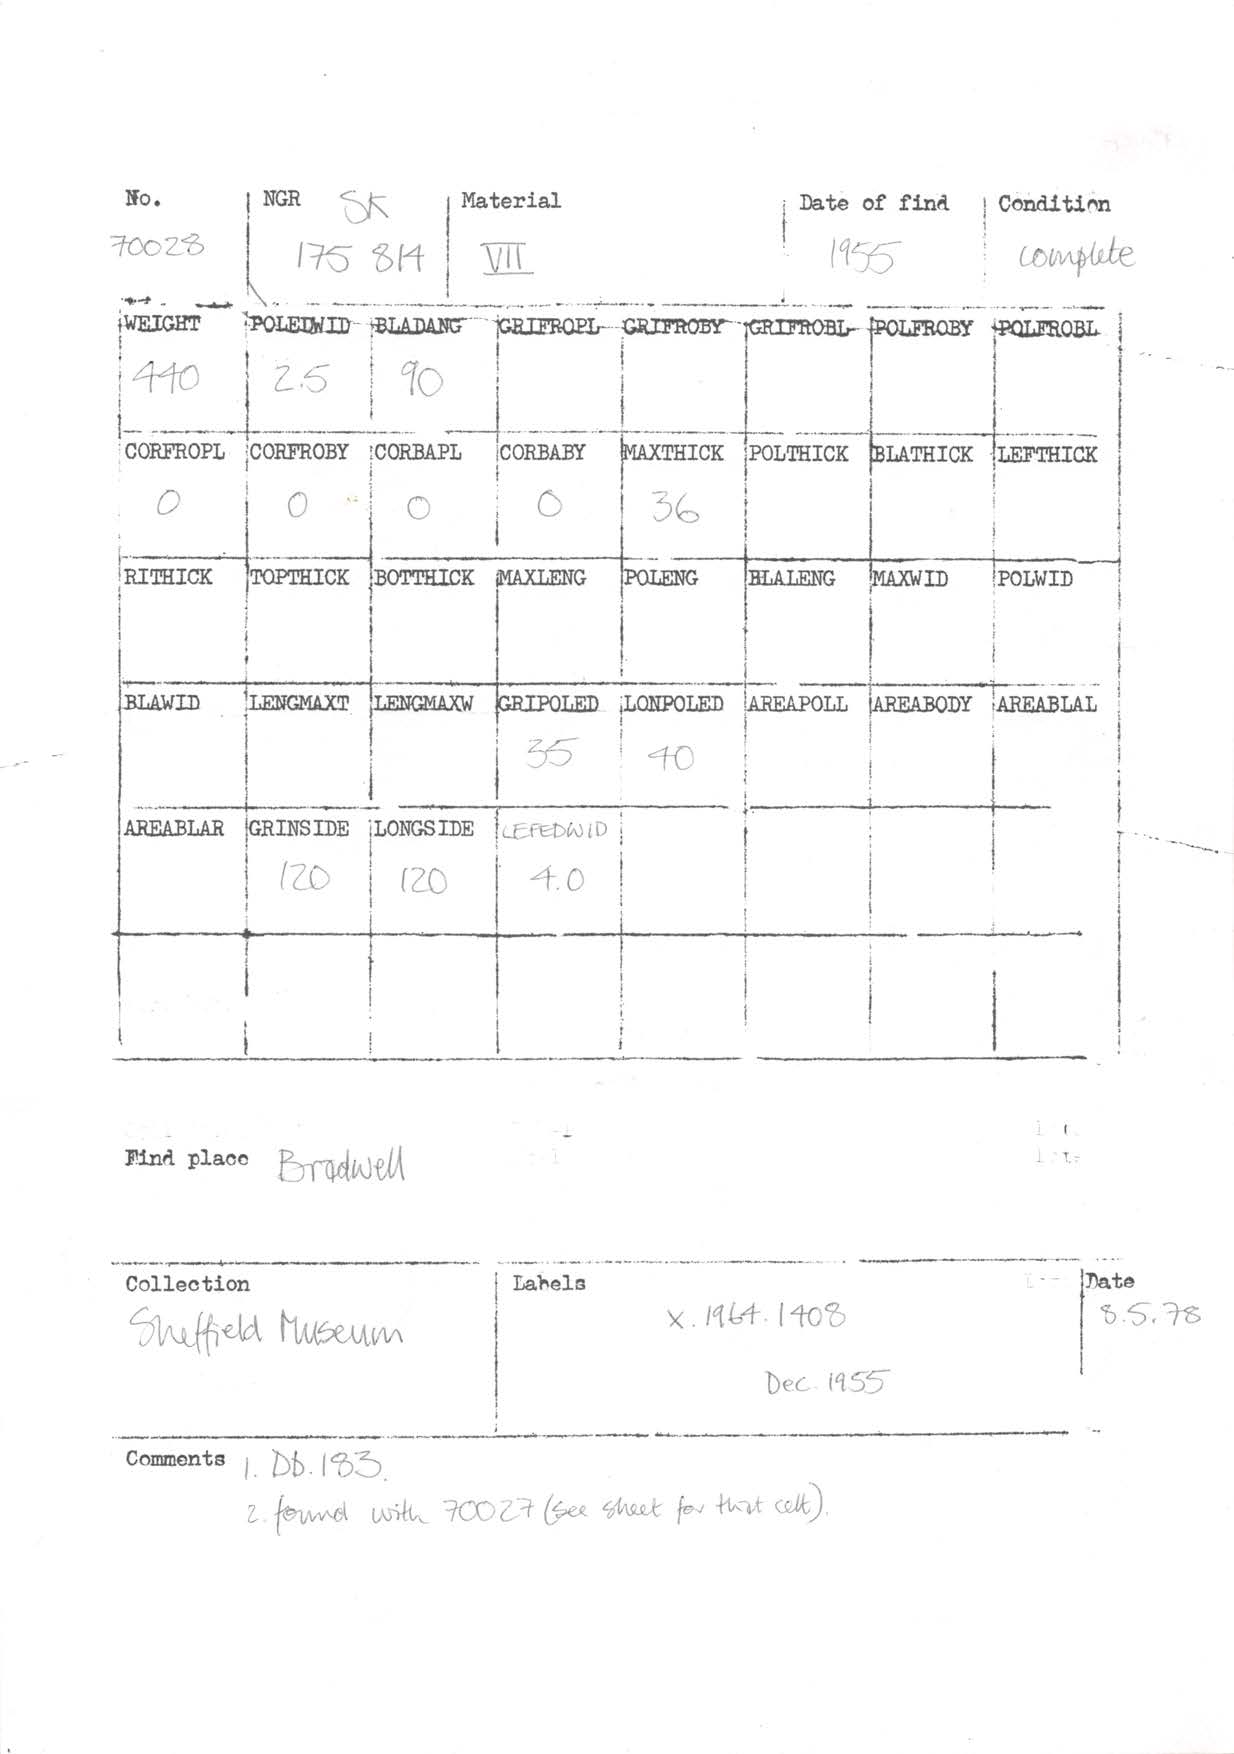 No. NGR SK Material Date of find Condition
70028 175 814 VII 1955 complete
WEIGHT POLEDWID BLADANG GRIFROPL GRIFROBY GRIFROBL POLFROBY POLFROBL
440 2.5 90
CORFROPL CORFROBY CORBAPL CORBABY MAXTHICK POLTHICK BLATHICK LEFTHICK
0 0 0 0 36
RITHICK TOPTHICK BOTTHICK MAXLENG POLENG BLALENG MAXWID POLWID
BLAWID LENGMAXT LENGMAXW GRIPOLED LONPOLED AREAPOLL AREABODY AREABLAL
35 40
AREABLAR GRINSIDE LONGSIDE LEFEDWID
120 120 4.0
Find place Bradwell
Collection Labels Date
Sheffield Museum X.1964.1408 8.5.78
Dec. 1955
Comments 1. Db.183.
2. found with 70027 (see sheet for that celt).